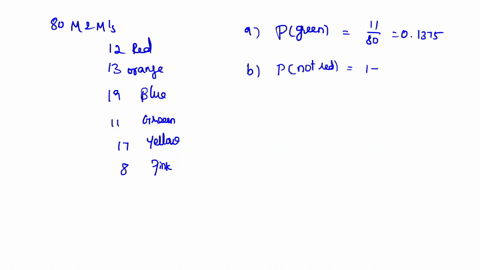 80 M&M's
12 Red
13 orange
19 Blue
11 Green
17 Yellow
8 Pink
a) P(green) = 11/80 = 0.1375
b) P(not red) = 1-